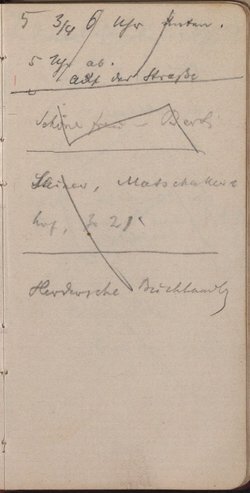 5 3/4 6 Uhr unten.
5 Uhr ab.
auf der Straße
Schöne Frau – 
Steiner, Matschaker
hof, Z 21
Herdersche Buchhandlg